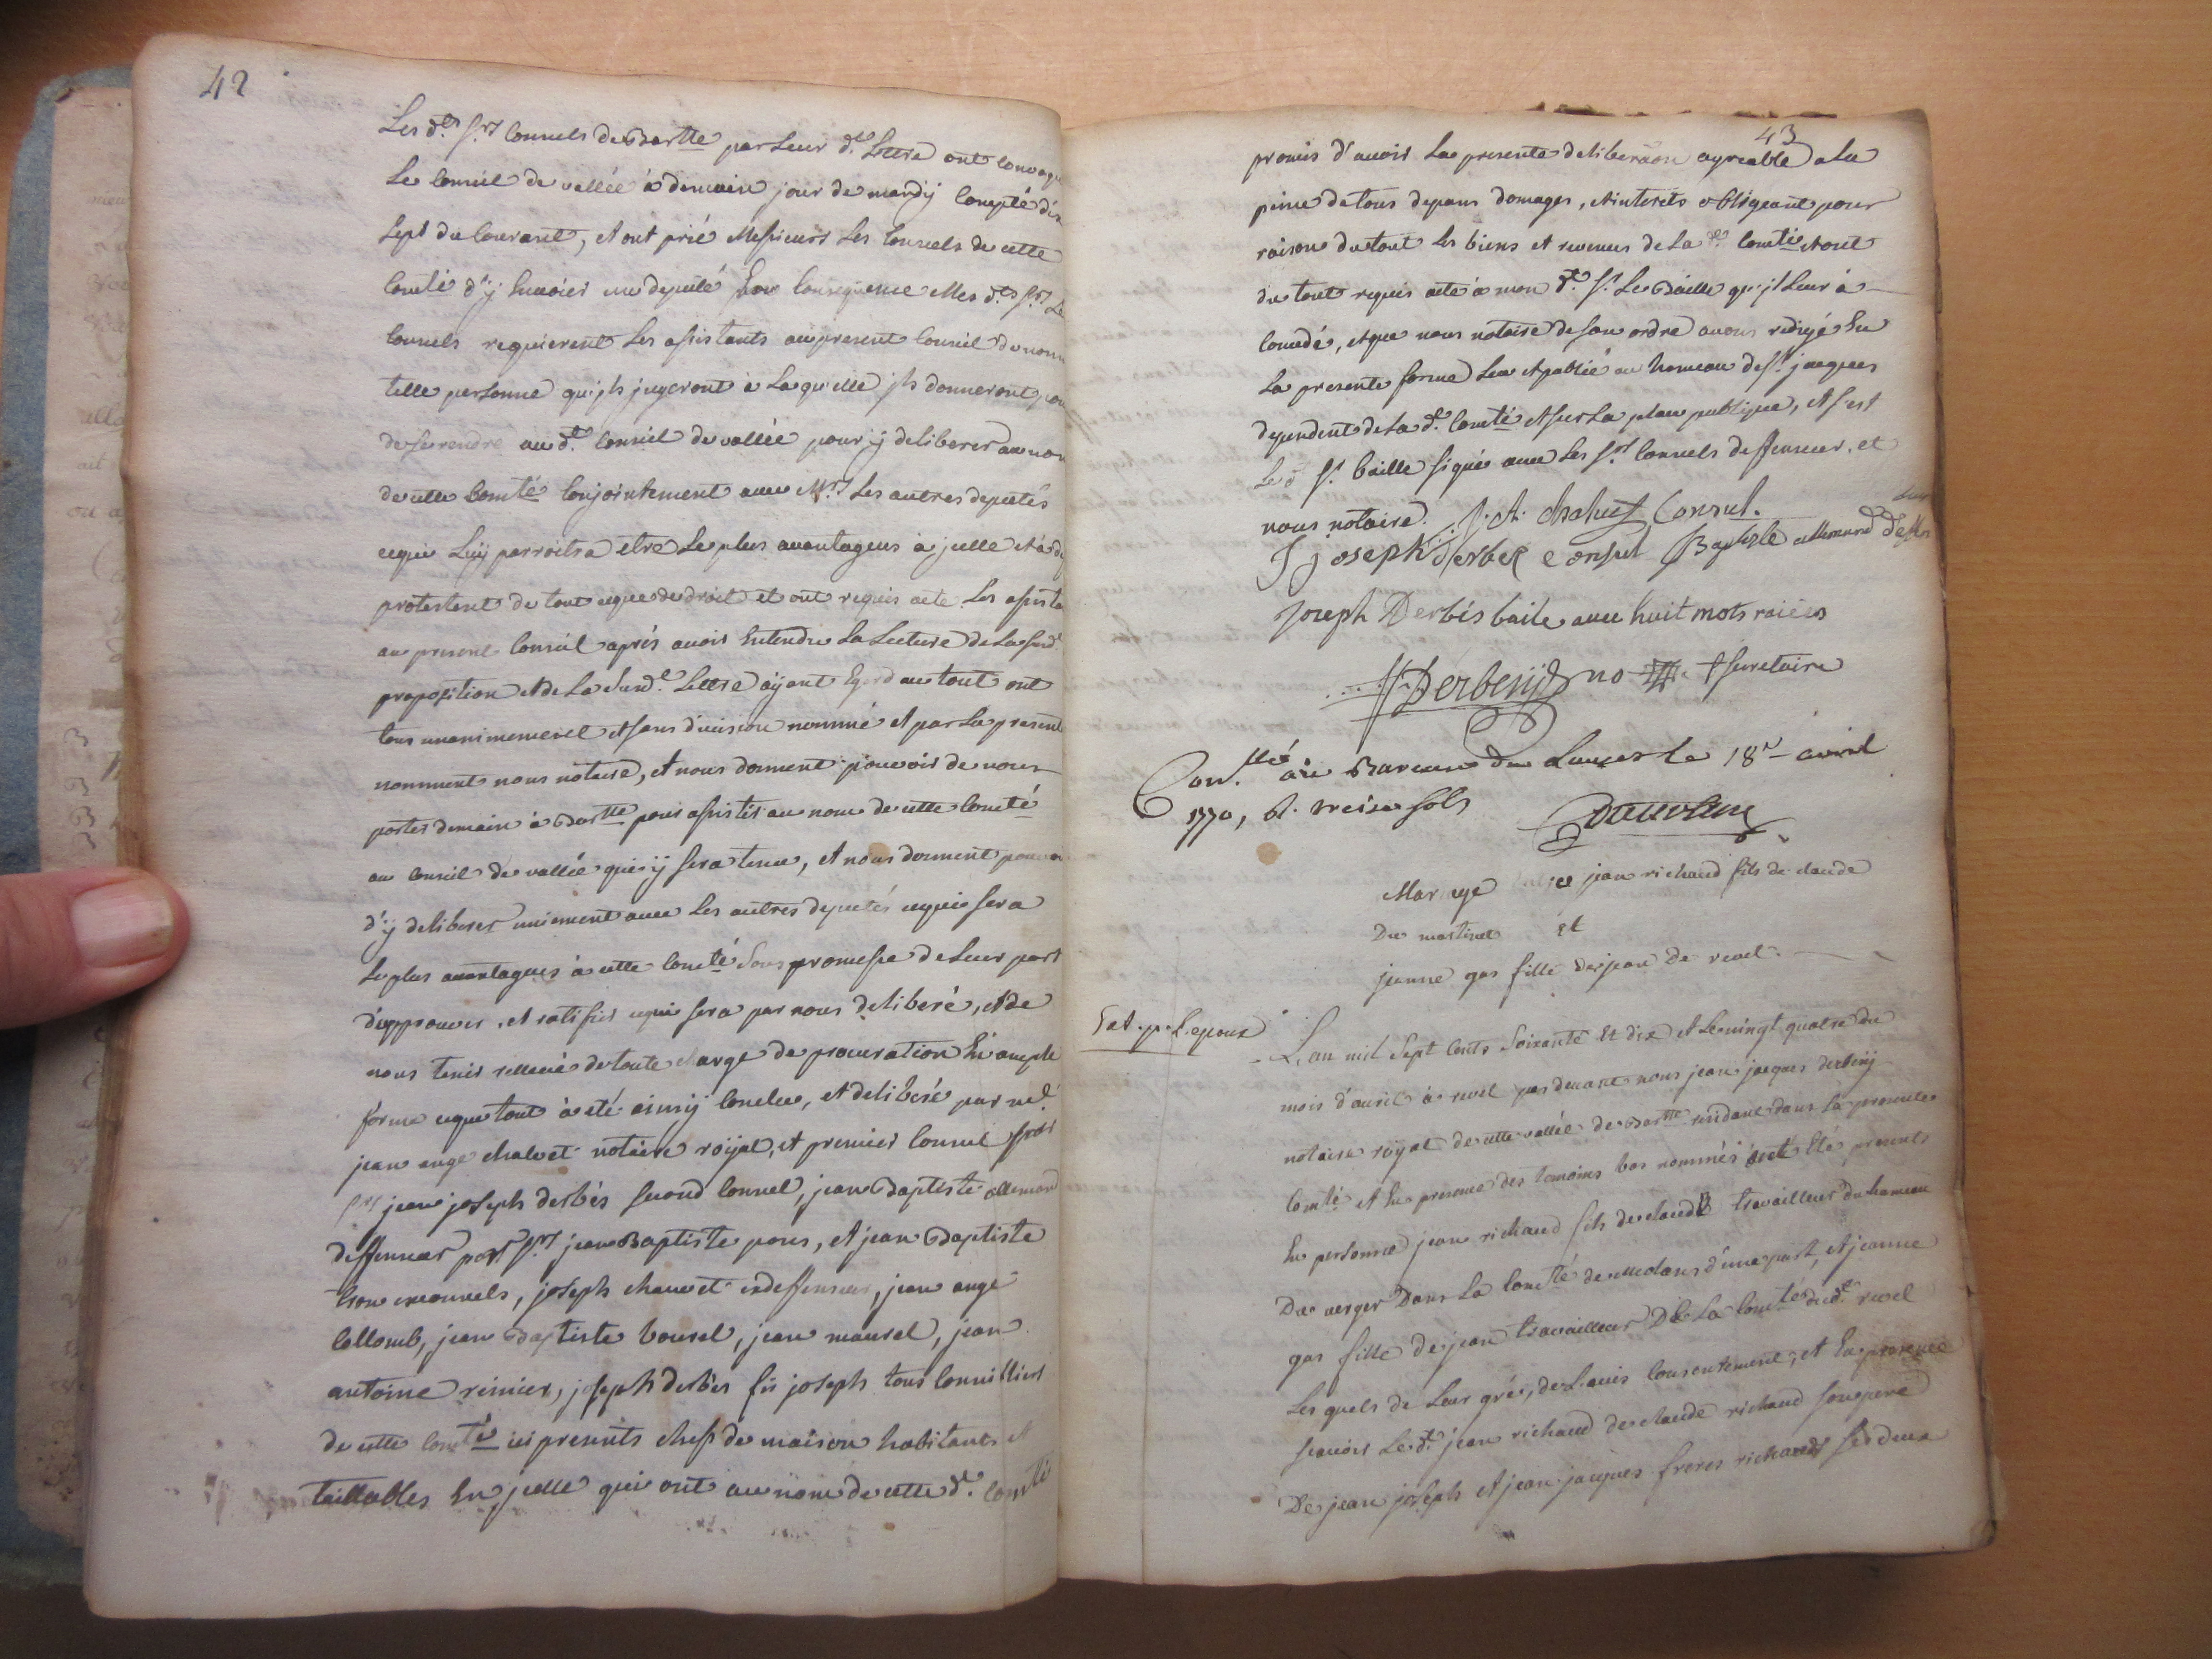 42
Les d.ts S.rs Consuls de Bar.tte par Leur d.te Lettre ont Convoqu
Le Conseil de vallée à demain jour de mardy Compté dix
sept du Courant, et ont prié Messieurs Les Consuls de cette
Com.té d'y Envoier un deputé En Consequence Mes d.ts S.rs Le
Consuls requierent Les assistants au present Conseil de nom
telle personne qu'jls jugeront à Laquelle jls donneront pou
de se rendre au d.t Conseil de vallée pour ÿ deliberer au nom
de cette Com.té Conjointement avec M.rs Les autres deputés
cequi Luÿ parroitra etre Le plus avantageus à jcelle et à d
protestent de tout ceque de droit et ont requis acte Les assista
au present Conseil aprés avoir Entendu La Lecture de La susd.e
proposition et de La susd.e Lettre aÿant Egard au tout ont
tous unanimement et sans division nommé et par La present
nomment nous notaire, et nous donnent pouvoir de nous
porter demain à Bar.tte pour assister au nom de cette Com.té
au Conseil de vallée qui ÿ sera tenu, et nous donnent pouvoi
d'ÿ deliberer uniement avec Les autres deputés cequi sera
Le plus avantageus à cette Com.té Sous promesse de Leur part
d'approuver, et ratifier cequi sera par nous deliberé, et de
nous tenir rellevé de toute charge de procuration En ample
forme ceque tout à été ainsÿ Conclu, et deliberé par
jean ange chalvet notaire roÿal, et premier Consul
S.rs jean joseph derbés second Consul, jean Baptiste allemand
deffenseur S.rs jean Baptiste pons, et jean Baptiste
tron exconsuls, joseph chauvet exdeffenseur, jean ange
Collomb, jean Baptiste bourel, jean maurel, jean
antoine reinier, joseph derbés fis joseph tous Conseilliers
de cette Com.té ici presents chefs de maison habitants et
taillables En jcelle qui ont au nom de cette d.te Com.té
43
promis d'avoir La presente deliberaon agreable a La
peine de tous depans domages, et interets obligeant pour
raison du tout Les biens et revenus de La d.te Com.té et ont
du tout requis acte à mon d.t S.r Le Baille qu'jl Leur à
Concedé, et que nous notaire de son ordre avons redigé En
La presente forme Leu et publié au hameau de S.t jacques
dependent de La d.te Com.té et sur La place publique, et s'est
Le d S.r baille signé avec Les S.rs Consuls deffenseur. et
nous notaire. J. A. Chalvet, Consul.
J joseph derbes Consul Baptiste allemand
joseph Derbés baile avec huit mots raiées
Derbezÿ no.re secretaire
Con.llé au Bureau du Lauzet le 18.e avril
1770, R. treise sols
Mariage entre jean richaud fils de claude
Du martinet et
jeanne gas fille de jean de revel.
Ext. p. L'epoux
L'an mil Sept Cents Soixante Et dix et Le vingt quatre du
mois d'avril à revel par devant nous jean jacques derbezÿ
notaire roÿal de cette vallée de Bar.tte residant dans La presente
Com.té et En presence des temoins bas nommés ont Eté presents
En personne jean richaud fils de claude travailleur du hameau
Du verger Dans La Com.té de meolans d'une part, et jeanne
gas fille de jean travailleur De La Com.té dud.t revel
Les quels de Leur gré, de L'avis Consentement, et En presence
scavoir Le d.t jean richaud de claude richaud son pere
De jean joseph et jean jacques freres richauds ses deux